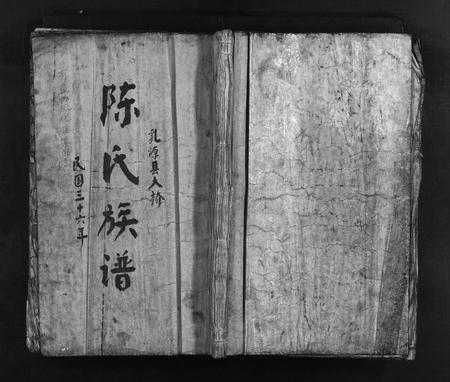 乳源县大桥
陈氏族谱
民国三十六年